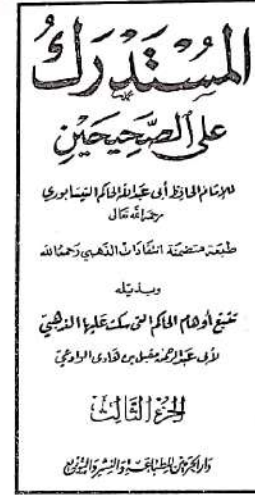 المُسْتَدْرَكُ
عَلَى الصَّحِيحَيْنِ
للإمام الحافظ أبي عبد الله الحاكم النيسابوري
رحمه الله تعالى
طبعة متضمنة انتقادات الذهبي رحمه الله
وبذيله
تتبع أوهام الحاكم التي سكت عليها الذهبي
لأبي عبد الرحمن مقبل بن هادي الوادعي
الجزء الثالث
دار الحرمين للطباعة والنشر والتوزيع